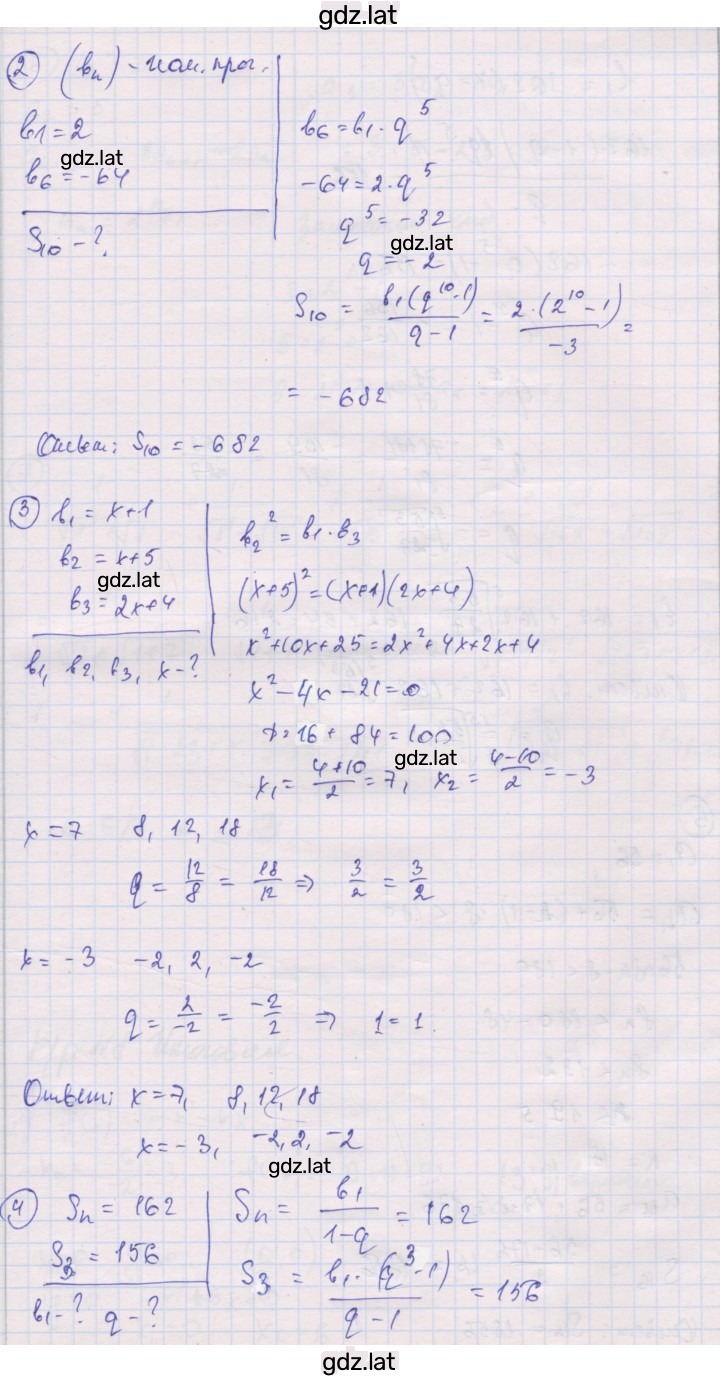 gdz.lat
2 (bn) - геом. прог.
b1 = 2
gdz.lat
b6 = -64
S10 - ?
b6 = b1 · q^5
-64 = 2 · q^5
q^5 = -32
gdz.lat
q = -2
S10 = b1(q^10 - 1) / (q - 1) = 2 · (2^10 - 1) / -3 =
= -682
Ответ: S10 = -682
3 b1 = x+1
b2 = x+5
gdz.lat
b3 = 2x+4
b1, b2, b3, x - ?
b2^2 = b1 · b3
(x+5)^2 = (x+1)(2x+4)
x^2+10x+25 = 2x^2+4x+2x+4
x^2 - 4x - 21 = 0
D = 16 + 84 = 100
gdz.lat
x1 = (4+10)/2 = 7, x2 = (4-10)/2 = -3
x = 7 8, 12, 18
q = 12/8 = 18/12 => 3/2 = 3/2
x = -3 -2, 2, -2
q = 2/-2 = -2/2 => 1 = 1.
Ответ: x = 7, 8, 12, 18
x = -3, -2, 2, -2
gdz.lat
4 Sn = 162
S3 = 156
b1 - ? q - ?
Sn = b1 / (1-q) = 162
S3 = b1 · (q^3 - 1) / (q - 1) = 156
gdz.lat